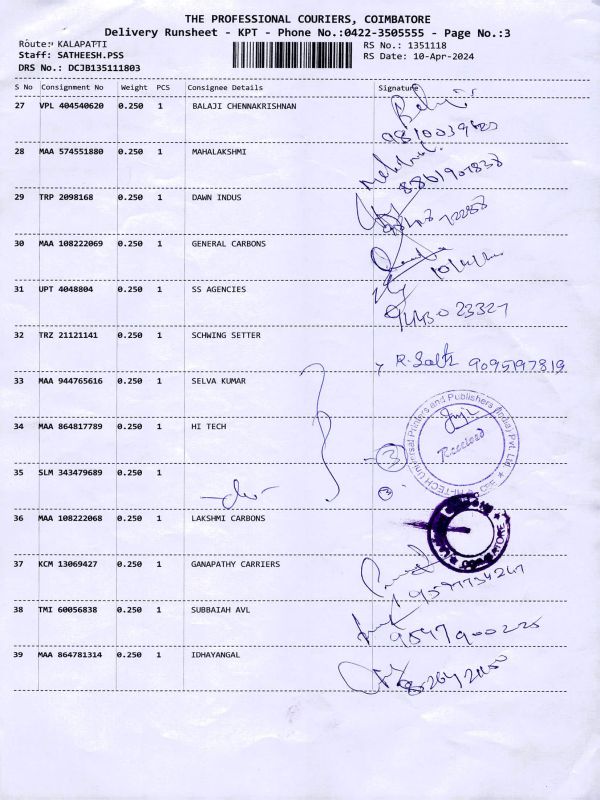 THE PROFESSIONAL COURIERS, COIMBATORE
Delivery Runsheet - KPT - Phone No.:0422-3505555 - Page No.:3
Route: KALAPATTI
RS No.: 1351118
Staff: SATHEESH.PSS
RS Date: 10-Apr-2024
DRS No.: DCJB135111803
S No Consignment No Weight PCS Consignee Details Signature
27 VPL 404540620 0.250 1 BALAJI CHENNAKRISHNAN
28 MAA 574551880 0.250 1 MAHALAKSHMI
29 TRP 2098168 0.250 1 DAWN INDUS
30 MAA 108222069 0.250 1 GENERAL CARBONS
31 UPT 4048804 0.250 1 SS AGENCIES
32 TRZ 21121141 0.250 1 SCHWING SETTER
9095197819
33 MAA 944765616 0.250 1 SELVA KUMAR
34 MAA 864817789 0.250 1 HI TECH
3
Received
HI-TECH Universal Printers and Publishers (India) Pvt. Ltd
35 SLM 343479689 0.250 1
36 MAA 108222068 0.250 1 LAKSHMI CARBONS
37 KCM 13069427 0.250 1 GANAPATHY CARRIERS
38 TMI 60056838 0.250 1 SUBBAIAH AVL
39 MAA 864781314 0.250 1 IDHAYANGAL